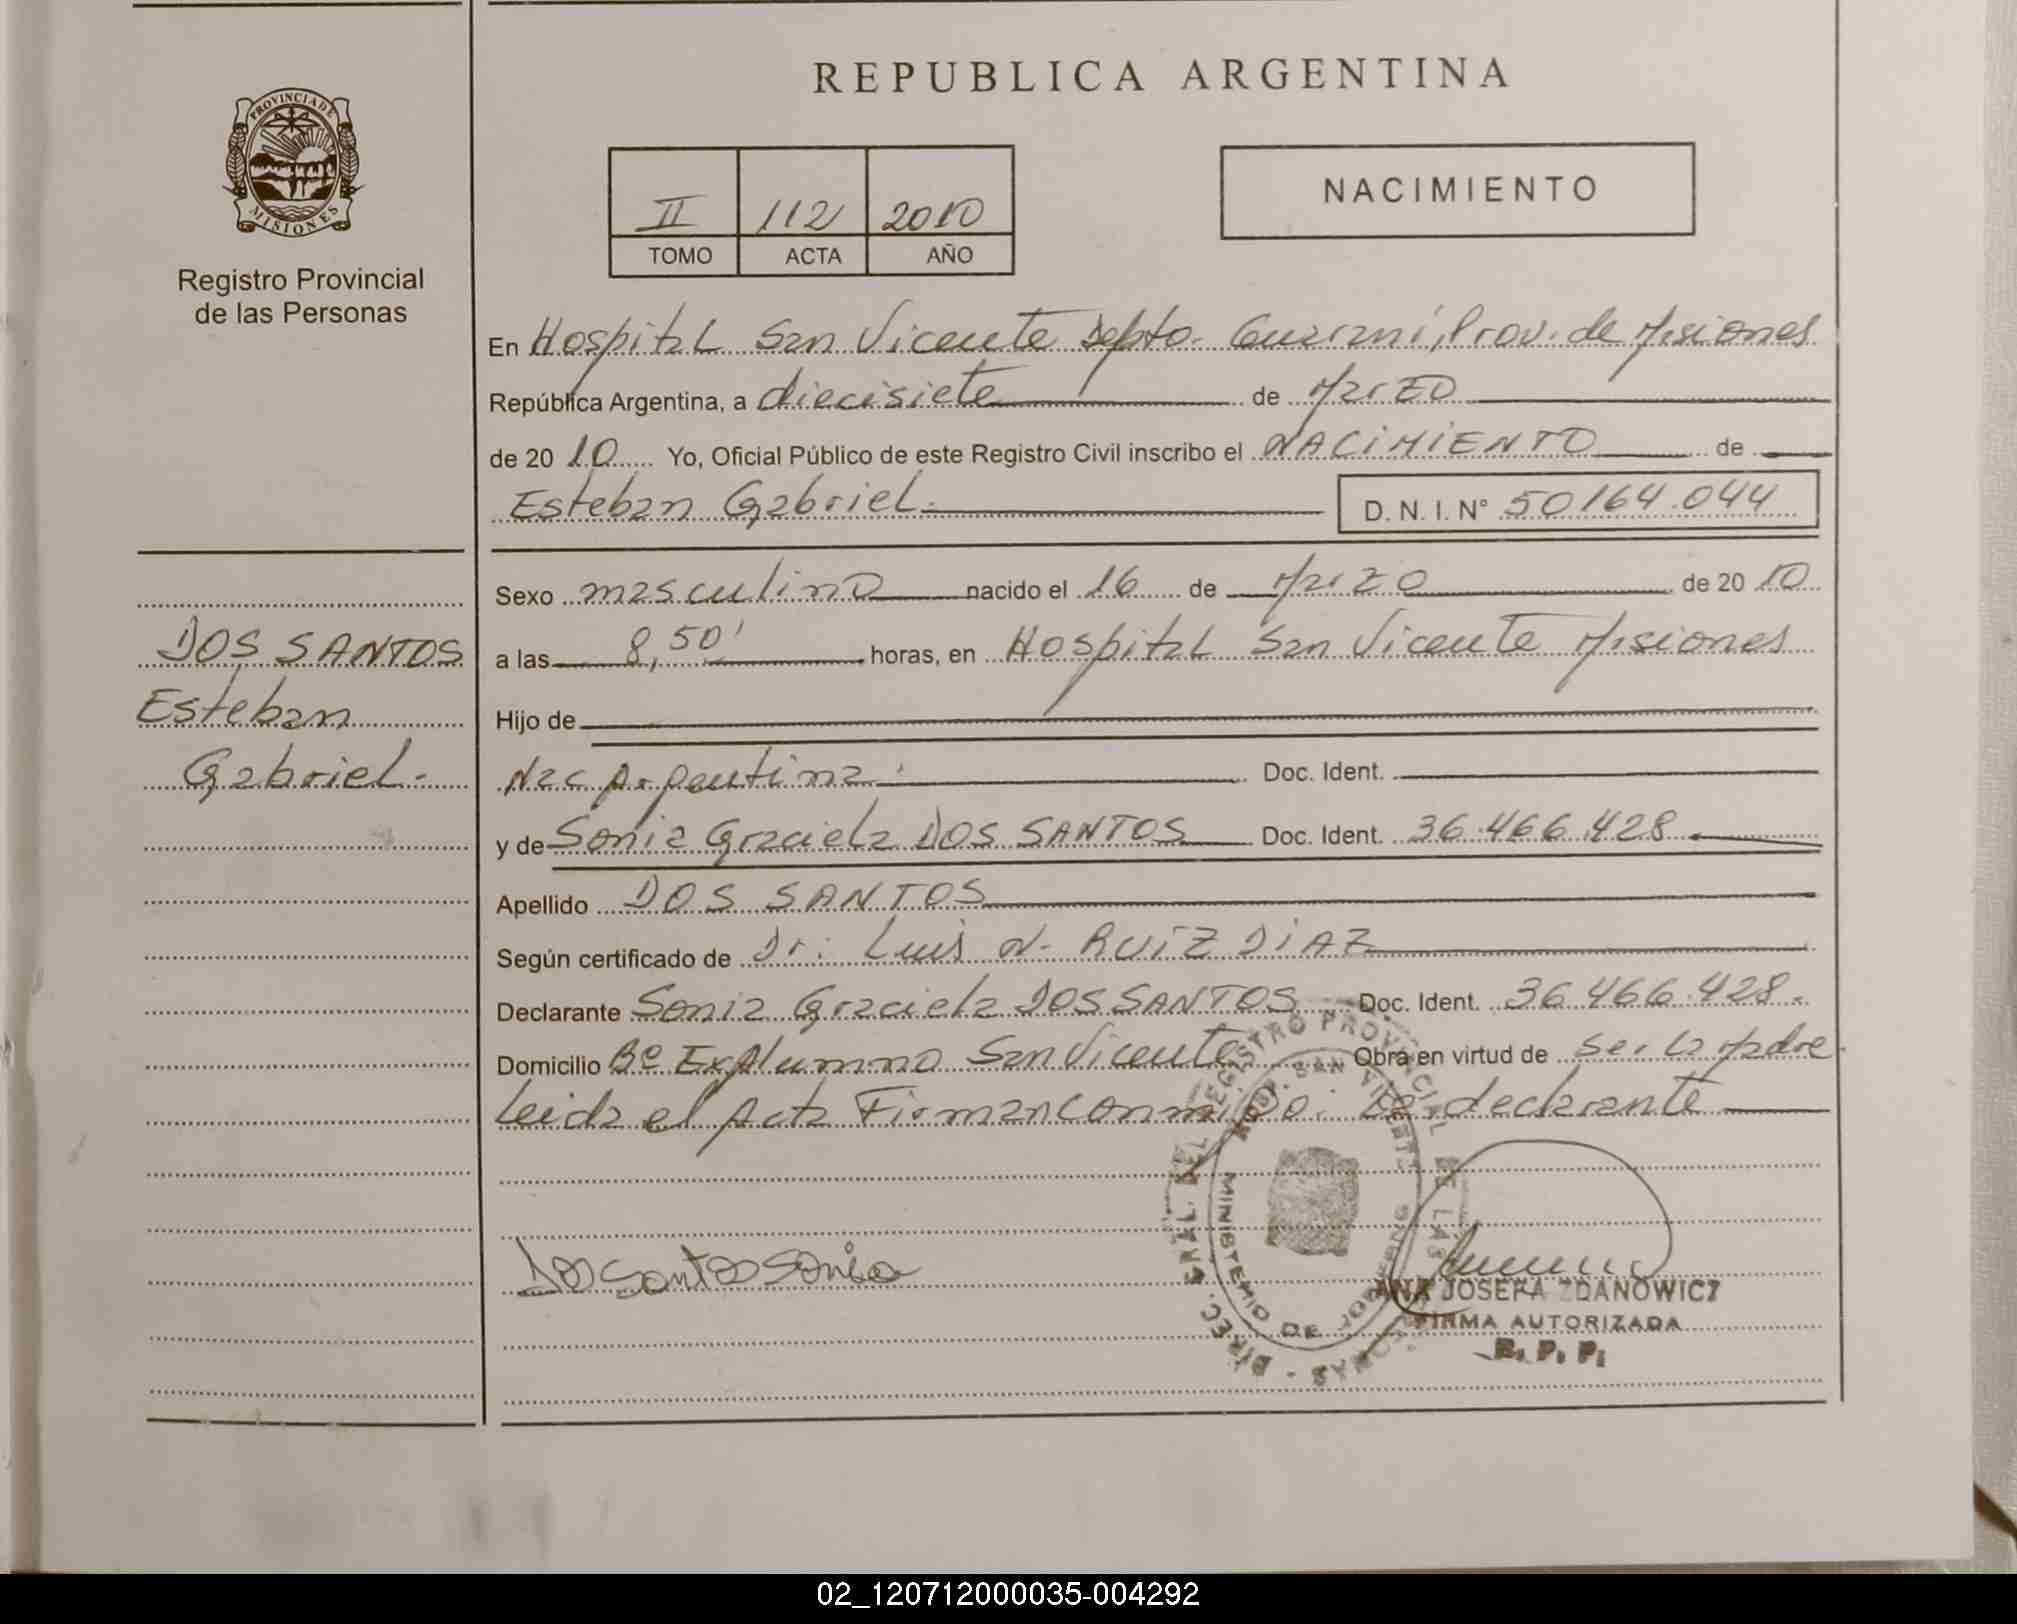 REPUBLICA ARGENTINA
PROVINCIA DE MISIONES
Registro Provincial
de las Personas
II 112 2010
TOMO ACTA AÑO
NACIMIENTO
En Hospital San Vicente Depto. Guarani, Prov. de Misiones
República Argentina, a diecisiete de Marzo
de 2010 Yo, Oficial Público de este Registro Civil inscribo el NACIMIENTO de
Esteban Gabriel.
D. N. I. N° 50164.044
DOS SANTOS
Esteban
Gabriel.
Sexo masculino nacido el 16 de Marzo de 2010
a las 8,50' horas, en Hospital San Vicente Misiones
Hijo de
Nac Argentina. Doc. Ident.
y de Sonia Graciela DOS SANTOS Doc. Ident. 36.466.428
Apellido DOS SANTOS
Según certificado de Dr. Luis N. RUIZ DIAZ
Declarante Sonia Graciela DOS SANTOS Doc. Ident. 36.466.428.
Domicilio Bº Ex Alumno San Vicente Obra en virtud de ser la Madre
Leida el Acta Firman conmigo: La declarante
Dos Santos Sonia
DIREC. GRAL. DEL REGISTRO PROVINCIAL DE LAS PERSONAS
HOSP. SAN VICENTE
MINISTERIO DE GOBIERNO
ANA JOSEFA ZDANOWICZ
FIRMA AUTORIZADA
R. P. P.
02_120712000035-004292